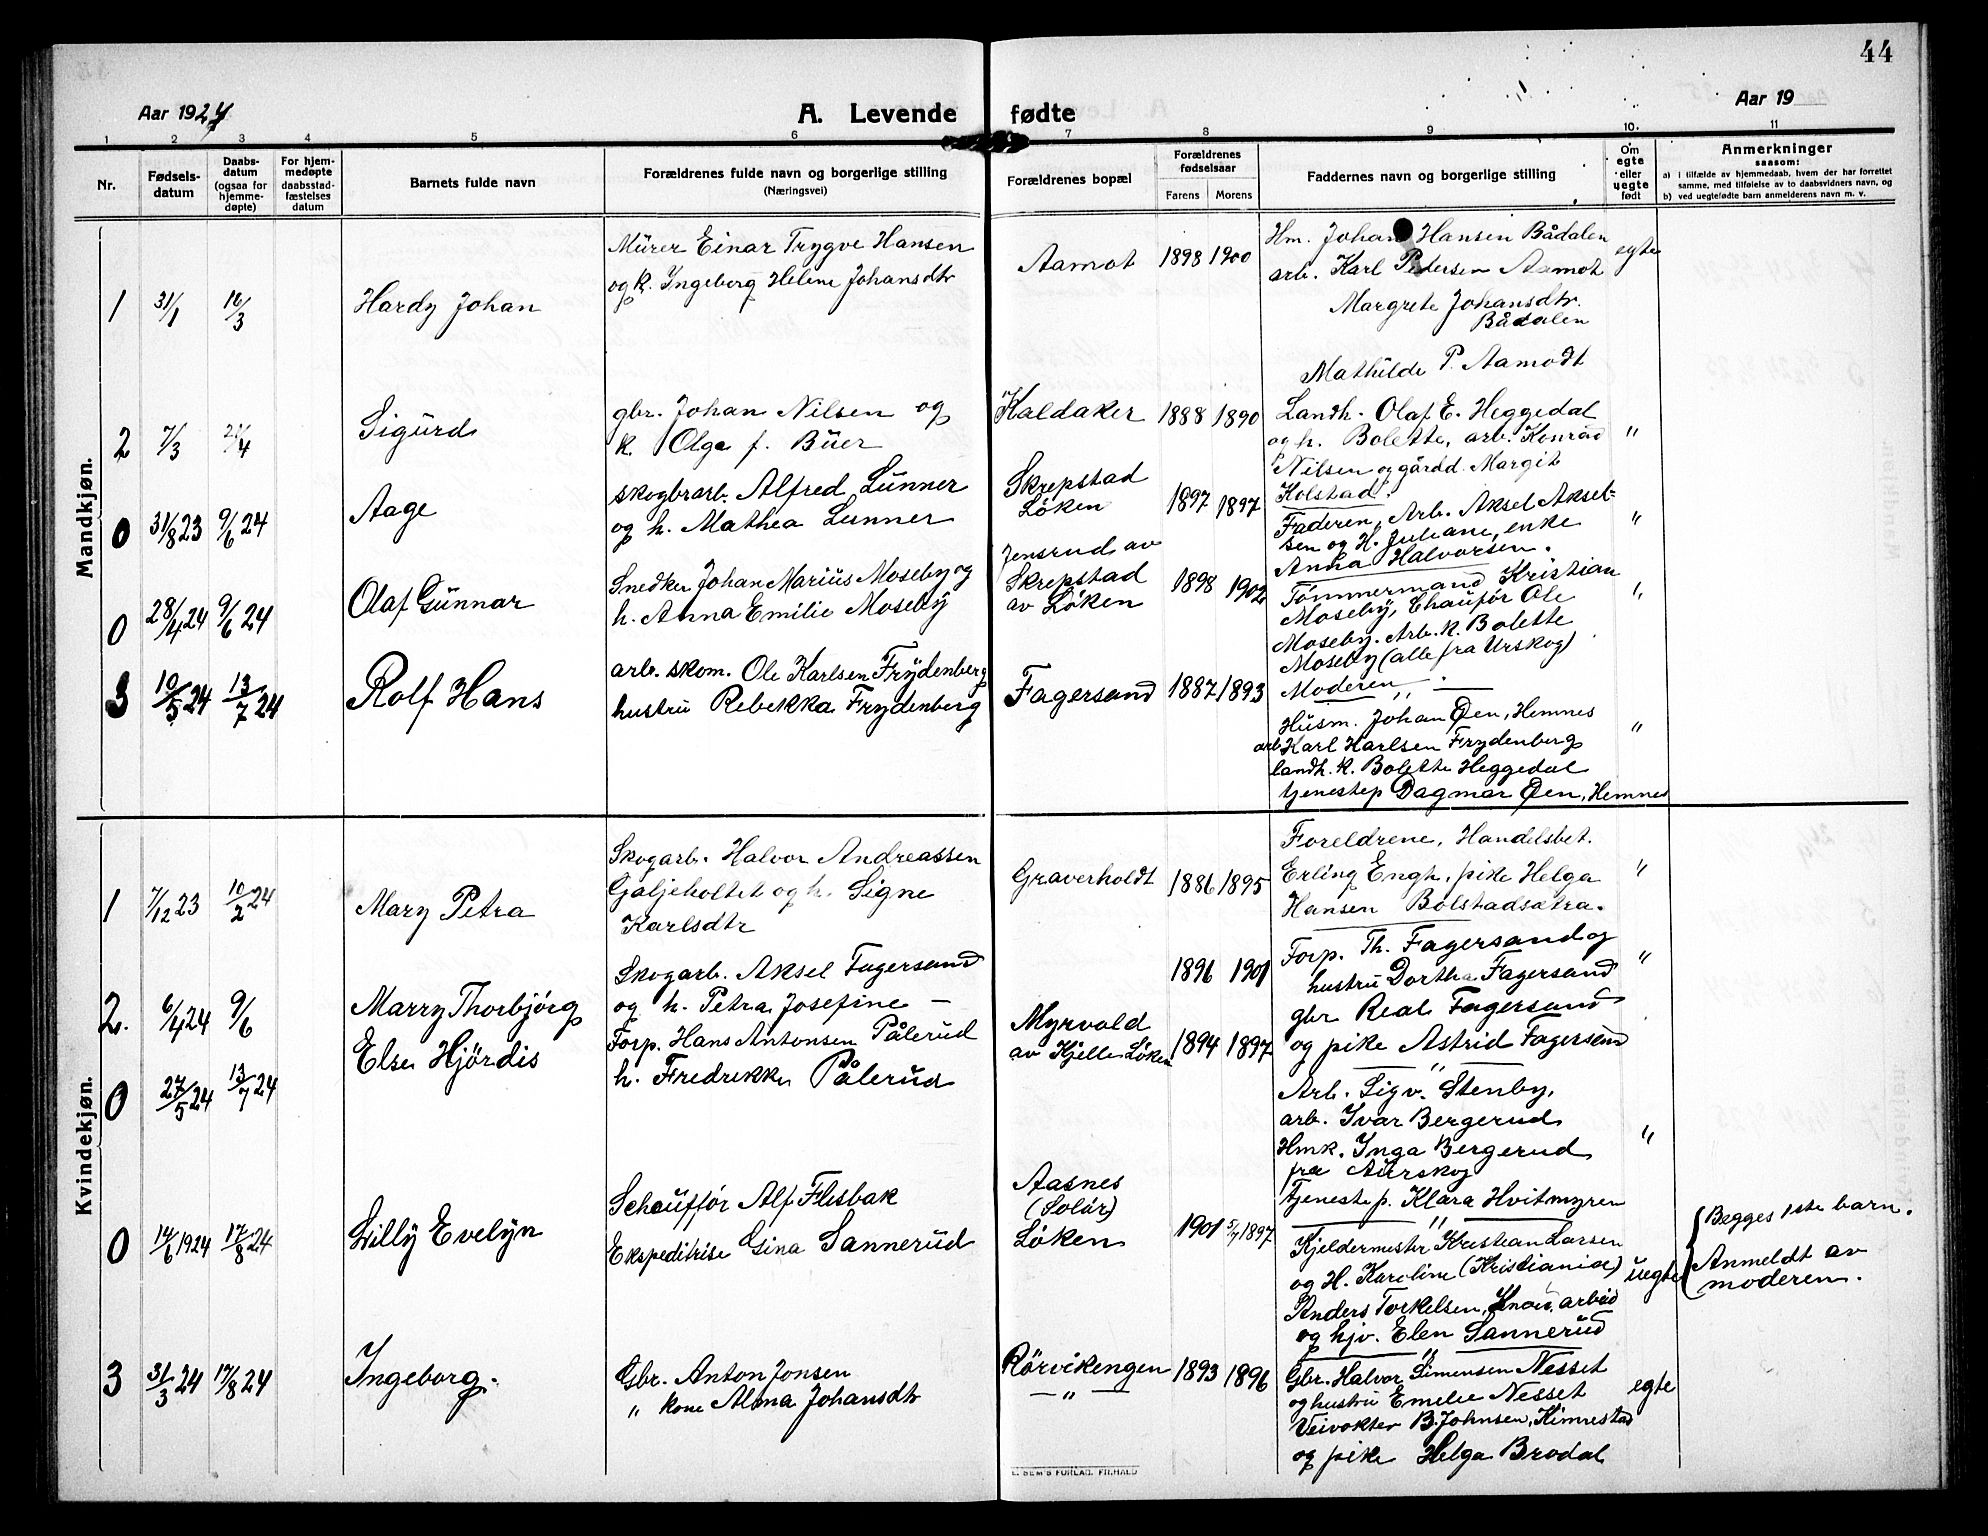 44
Aar 1924
A. Levende fødte
Aar 19
1 2 3 4 5 6 7 8 9 10. 11
Nr.
Fødsels-
datum
Daabs-
datum
(ogsaa for
hjemme-
døpte)
For hjem-
medøpte
daabsstad-
fæstelses
datum
Barnets fulde navn
Forældrenes fulde navn og borgerlige stilling
(Næringsvei)
Forældrenes bopæl
Forældrenes
fødselsaar
Farens Morens
Faddernes navn og borgerlige stilling
Om
egte
eller
uegte
født
Anmerkninger
saasom:
a) I tilfælde av hjemmedaab, hvem der har forrettet
samme, med tilføielse av to daabsvidners navn, og
b) ved uegtefødte barn anmelderens navn m. v.
Mandkjøn.
1 31/1 16/3
Hardy Johan
Mürer Einar Trygve Hansen
og k. Ingeborg Helene Johansdtr
Aamot 1898 1900
Hm. Johan Hansen Bådalen
arb. Karl Pedersen Aamot
Margrete Johansdtr.
Bådalen
Mathilde P. Aamodt
egte
2 7/3 21/4
Sigurd
gbr. Johan Nilsen og
k. Olga f. Büer
Kaldaker 1888 1890
Landh. Olaf E. Heggedal
og h. Bolette, arb. Konrad
Nilsen og gårdd. Margit
Kolstad.
"
0 31/8 23 9/6 24
Aage
skogbrarb. Alfred Lunner
og h. Mathea Lunner
Skrepstad
Løken
1897 1897
Faderen, Arb. Aksel Aksel=
sen og H. Juliane, enke
Anna Halvorsen.
"
0 28/4 24 9/6 24
Olaf Günnar
Snedker Johan Marius Moseby og
h. Anna Emilie Moseby
Jensrud av
Skrepstad
av Løken
1898 1902
Tömmermand Kristian
Moseby, Chauför Ole
Moseby. Arb. k. Bolette
Moseby (alle fra Urskog)
"
3 10/5 24 13/7 24
Rolf Hans
arb. skom. Ole Karlsen Frydenberg
hustru Rebekka Frydenberg
Fagersand 1887 1893
Moderen
Husm. Johan Øen, Hemnes
arb Karl Karlsen Frydenberg
landh. k. Bolette Heggedal
tjenestep Dagmar Øen, Hemnes
"
Kvindekjøn.
1 7/12 23 10/2 24
Mary Petra
Skogarb. Halvor Andreassen
Galjeholtet og h. Signe
Karlsdtr
Graverholdt 1886 1895
Foreldrene, Handelsbet.
Erling Engh, pike Helga
Hansen Bolstadsætra.
"
2. 6/4 24 9/6
Marry Thorbjörg
Skogarb. Aksel Fagersand
og h. Petra Josefine —
1896 1901
Forp. Th. Fagersand og
hustru Dorthe Fagersand
gbr Real Fagersand
og pike Astrid Fagersand
"
0 27/5 24 13/7 24
Else Hjördis
Forp. Hans Antonsen Pålerud
h. Fredrekke Pålerud
Myrvold
av Kjelle Løken
1894 1897
Arb. Sigv. Stenby,
arb. Ivar Bergerud
Hmk. Inga Bergerud
fra Aurskog
Tjenestep. Klara Hvitmyren
"
0 14/6 1924 17/8 24
Lilly Evelyn
Schouffør Alf Flisbak
Ekspeditrise Gina Sannerud
Aasnes
(Solør)
Løken
1901 5/7 1897
Kjeldermester Kristian Larsen
og H. Karoline (Kristiania)
Anders Torkelsen, arbeid
og hjv. Elen Sannerud
uegte
Begges 1ste barn.
Anmeldt av
moderen.
3 31/3 24 17/8 24
Ingeborg.
Gbr. Anton Jonsen
" kone Alma Johansdtr
Rörvikengen
— " —
1893 1896
Gbr. Halvor Simensen Nesset
og hustru Emelie Nesset
Veivokter B. Johnsen, Kinnestad
og pike Helga Brodal
egte
E. SEM'S FORLAG. FR.HALD